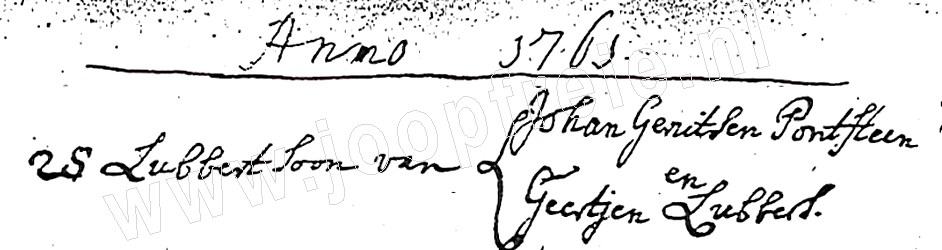 Anno 1761.
25 Lubbert Soon van { Johan Gerritsen Pontsteen
en
Geertjen Lubberts.
www.jooptreie.nl